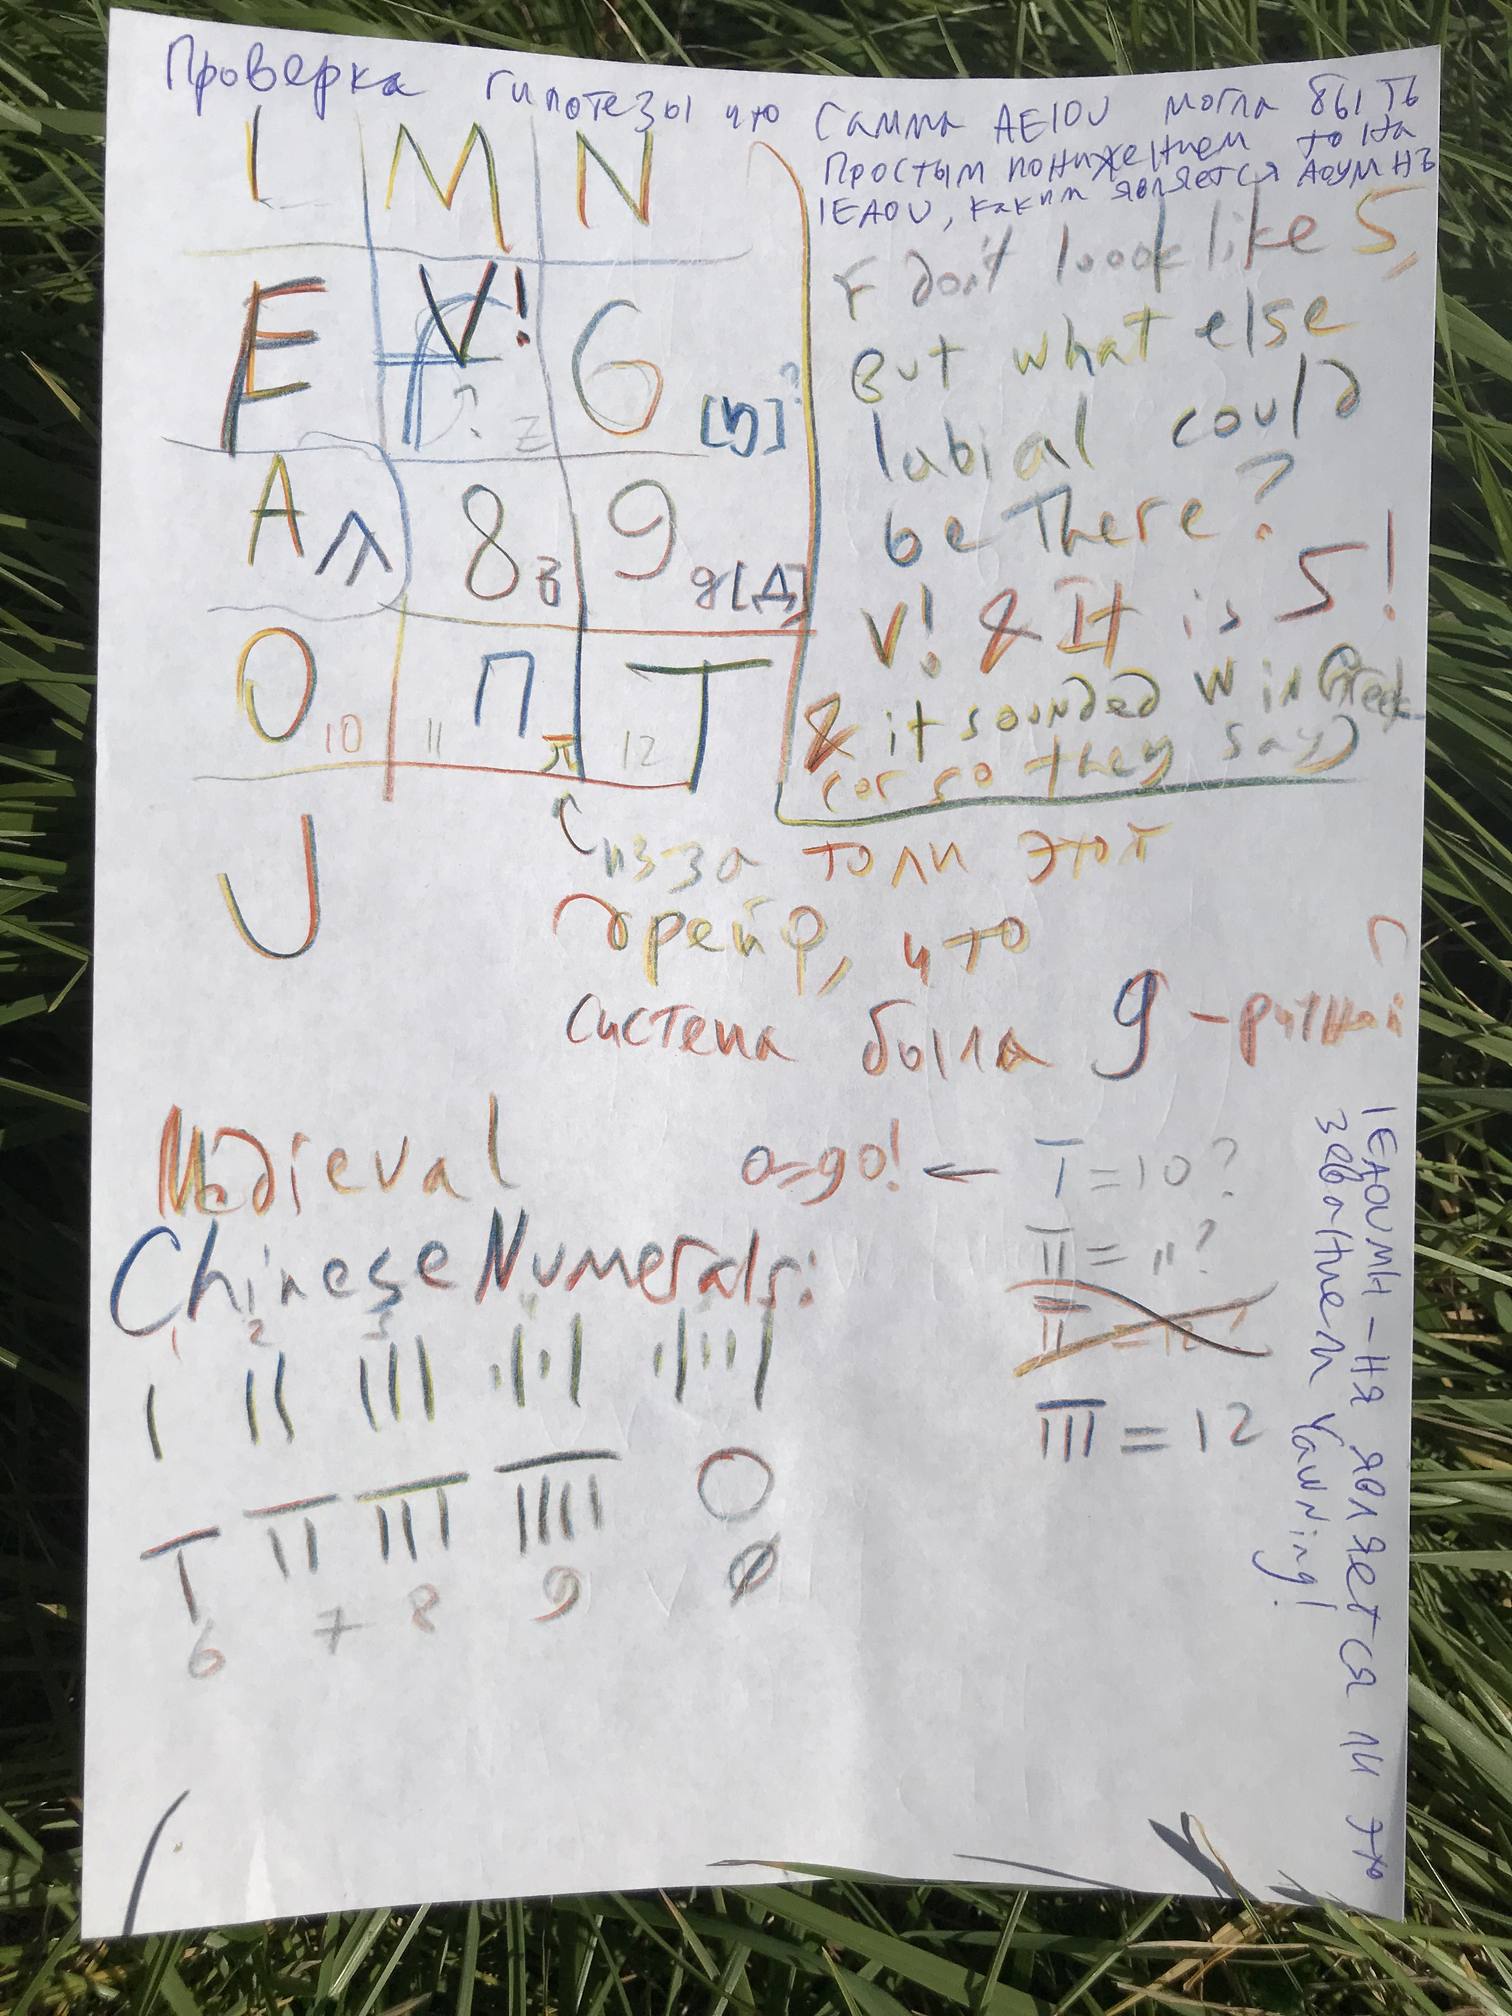 Проверка гипотезы что Гамма AEIOU могла быть
простым понижением тона
IEAOU, каким является АОУМНЪ
L M N
E V! G [ŋ]?
Z
A 8 В 9 g[Д]
O 10 11 П π 12 T
U
F don't loook like 5,
But what else
labial could
be There?
V! & It is 5!
& it sounded W in Greek
(or so they say)
из-за толи этот
дрейф, что
система была 9-ричной
Medieval
Chinese Numerals:
1 2 3
| || ||| |||| |||||
T 𝍡 𝍢 𝍣 O
6 7 8 9 Ø
o=90! ← T = 10?
II = 11?
II = 12?
III = 12
IEAOUMH-НЯ является ли это
зеванием Yawning!